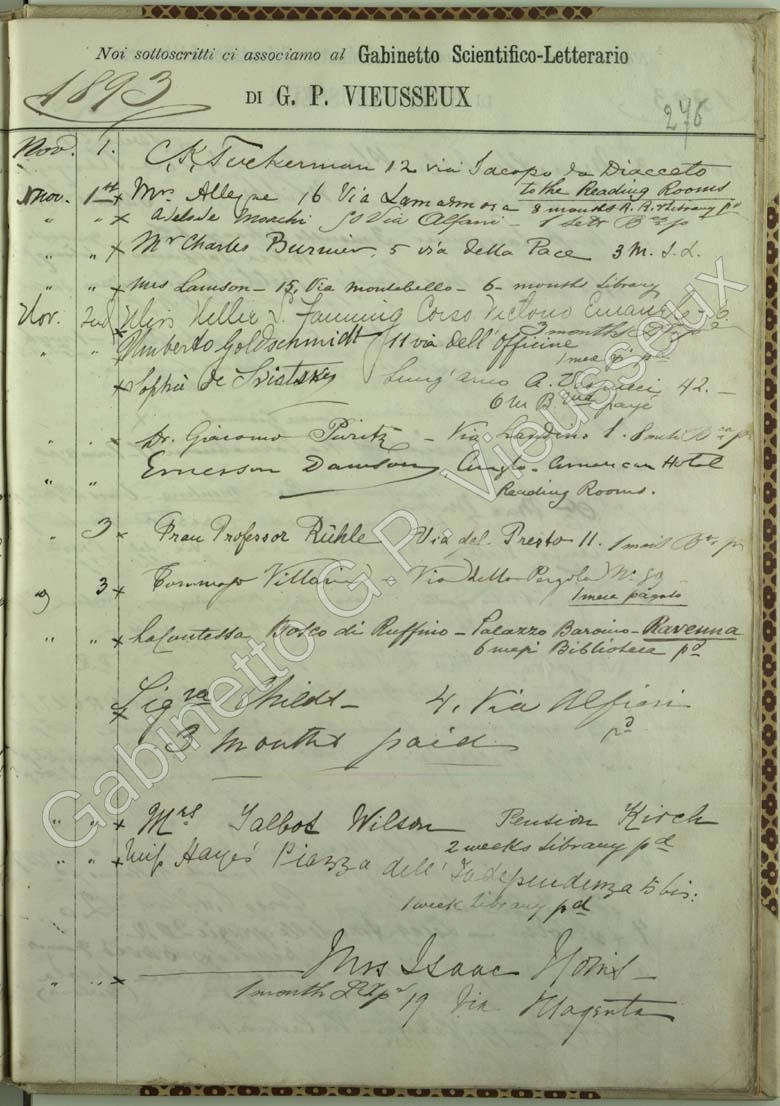 Noi sottoscritti ci associamo al Gabinetto Scientifico-Letterario
1893
DI G. P. VIEUSSEUX
276
Nov. 1. C. K. Tuckerman 12 via Jacopo da Diacceto
to the Reading Rooms
Nov. 1st x Mrs Alleyne 16 Via Lamarmora 8 months R. R. & Library pd
" " x Adelaide Via Alfani
" " x Mr Charles Burnier, 5 via della Pace 3 M. S. L.
" " x Mrs Lamson - 15, Via Montebello - 6 - months Library
Nov. 2nd x Miss Nellie S. Fanning Corso Vittorio Emanuele
3 months
" " x Umberto Goldschmidt 11 via dell' Officine
1 mese
x Sophie de Lung' arno A. Vespucci 42. -
6 M payé
" " x Dr. Giacomo Puritz - Via Landino 1.
" " Emerson Dawson Anglo-American Hotel
Reading Rooms.
" 3 x Frau Professor Rühle Via del Presto 11. 1 mois
" 3 x Tommaso Villari - Via della Pergola No
1 mese pagato
" " x La Contessa Bosco di Ruffino - Palazzo - Ravenna
6 mesi Biblioteca pd
x Sigra Childs - 4, Via Alfieri
3 months paid pd
" " x Mrs Talbot Wilson Pension Kirch
2 weeks Library pd
" " x Miss Hayes Piazza dell' Independenza 5 bis.
1 week Library pd
" " x Mrs Isaac
1 month 19 Via Magenta
Gabinetto G. P. Vieusseux